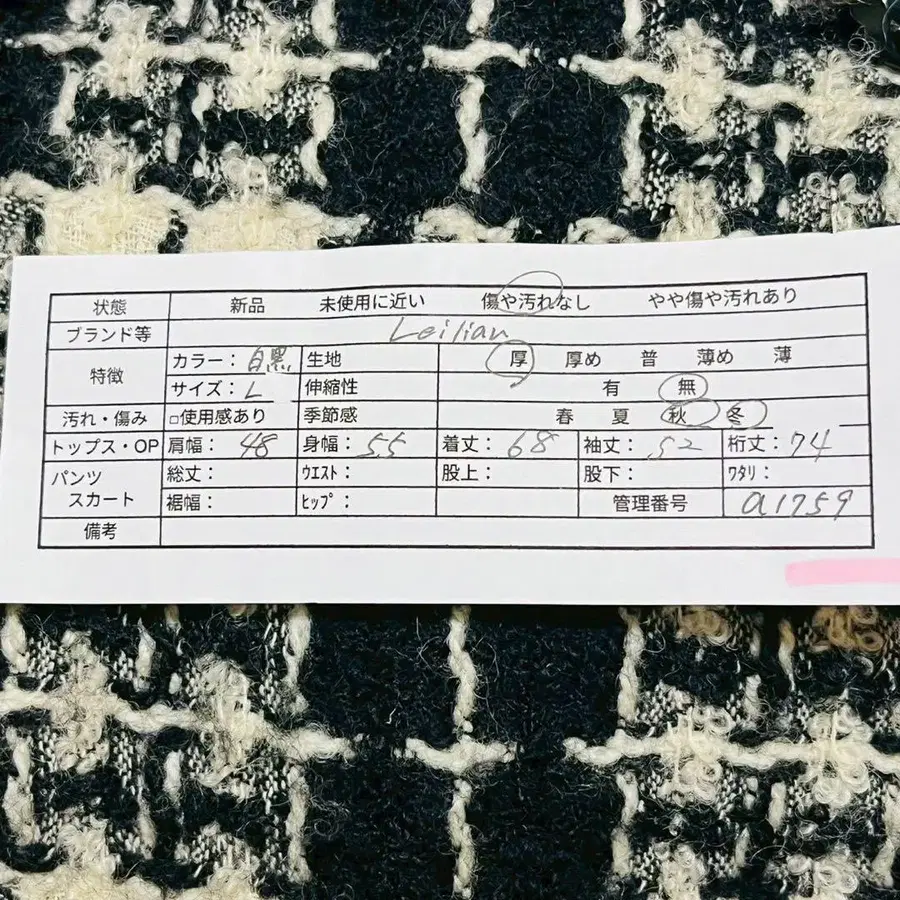 状態 新品 未使用に近い 傷や汚れなし やや傷や汚れあり
ブランド等 Leilian
特徴 カラー： 白黒 生地 厚 厚め 普 薄め 薄
サイズ： L 伸縮性 有 無
汚れ・傷み □使用感あり 季節感 春 夏 秋 冬
トップス・OP 肩幅： 48 身幅： 55 着丈： 68 袖丈： 52 裄丈： 74
パンツ スカート 総丈： ｳｴｽﾄ： 股上： 股下： ﾜﾀﾘ：
裾幅： ﾋｯﾌﾟ： 管理番号 a1759
備考